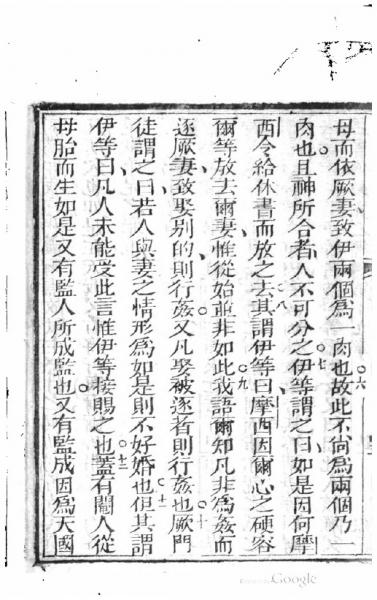 母而依厥妻致伊兩個爲一肉也○六故此不尚爲兩個乃一
肉也且神所合者人不可分之○七伊等謂之曰如是因何摩
西令給休書而放之去○八其謂伊等曰摩西因爾心之硬容
爾等放去爾妻惟從始並非如此○九我語爾知凡非爲姦而
逐厥妻致娶別的則行姦又凡娶被逐者則行姦也○十厥門
徒謂之曰若人與妻之情形爲如是則不好婚也○十一但其謂
伊等曰凡人未能受此言惟伊等接賜之也○十二蓋有閹人從
母胎而生如是又有監人所成監也又有監成因爲天國
Google